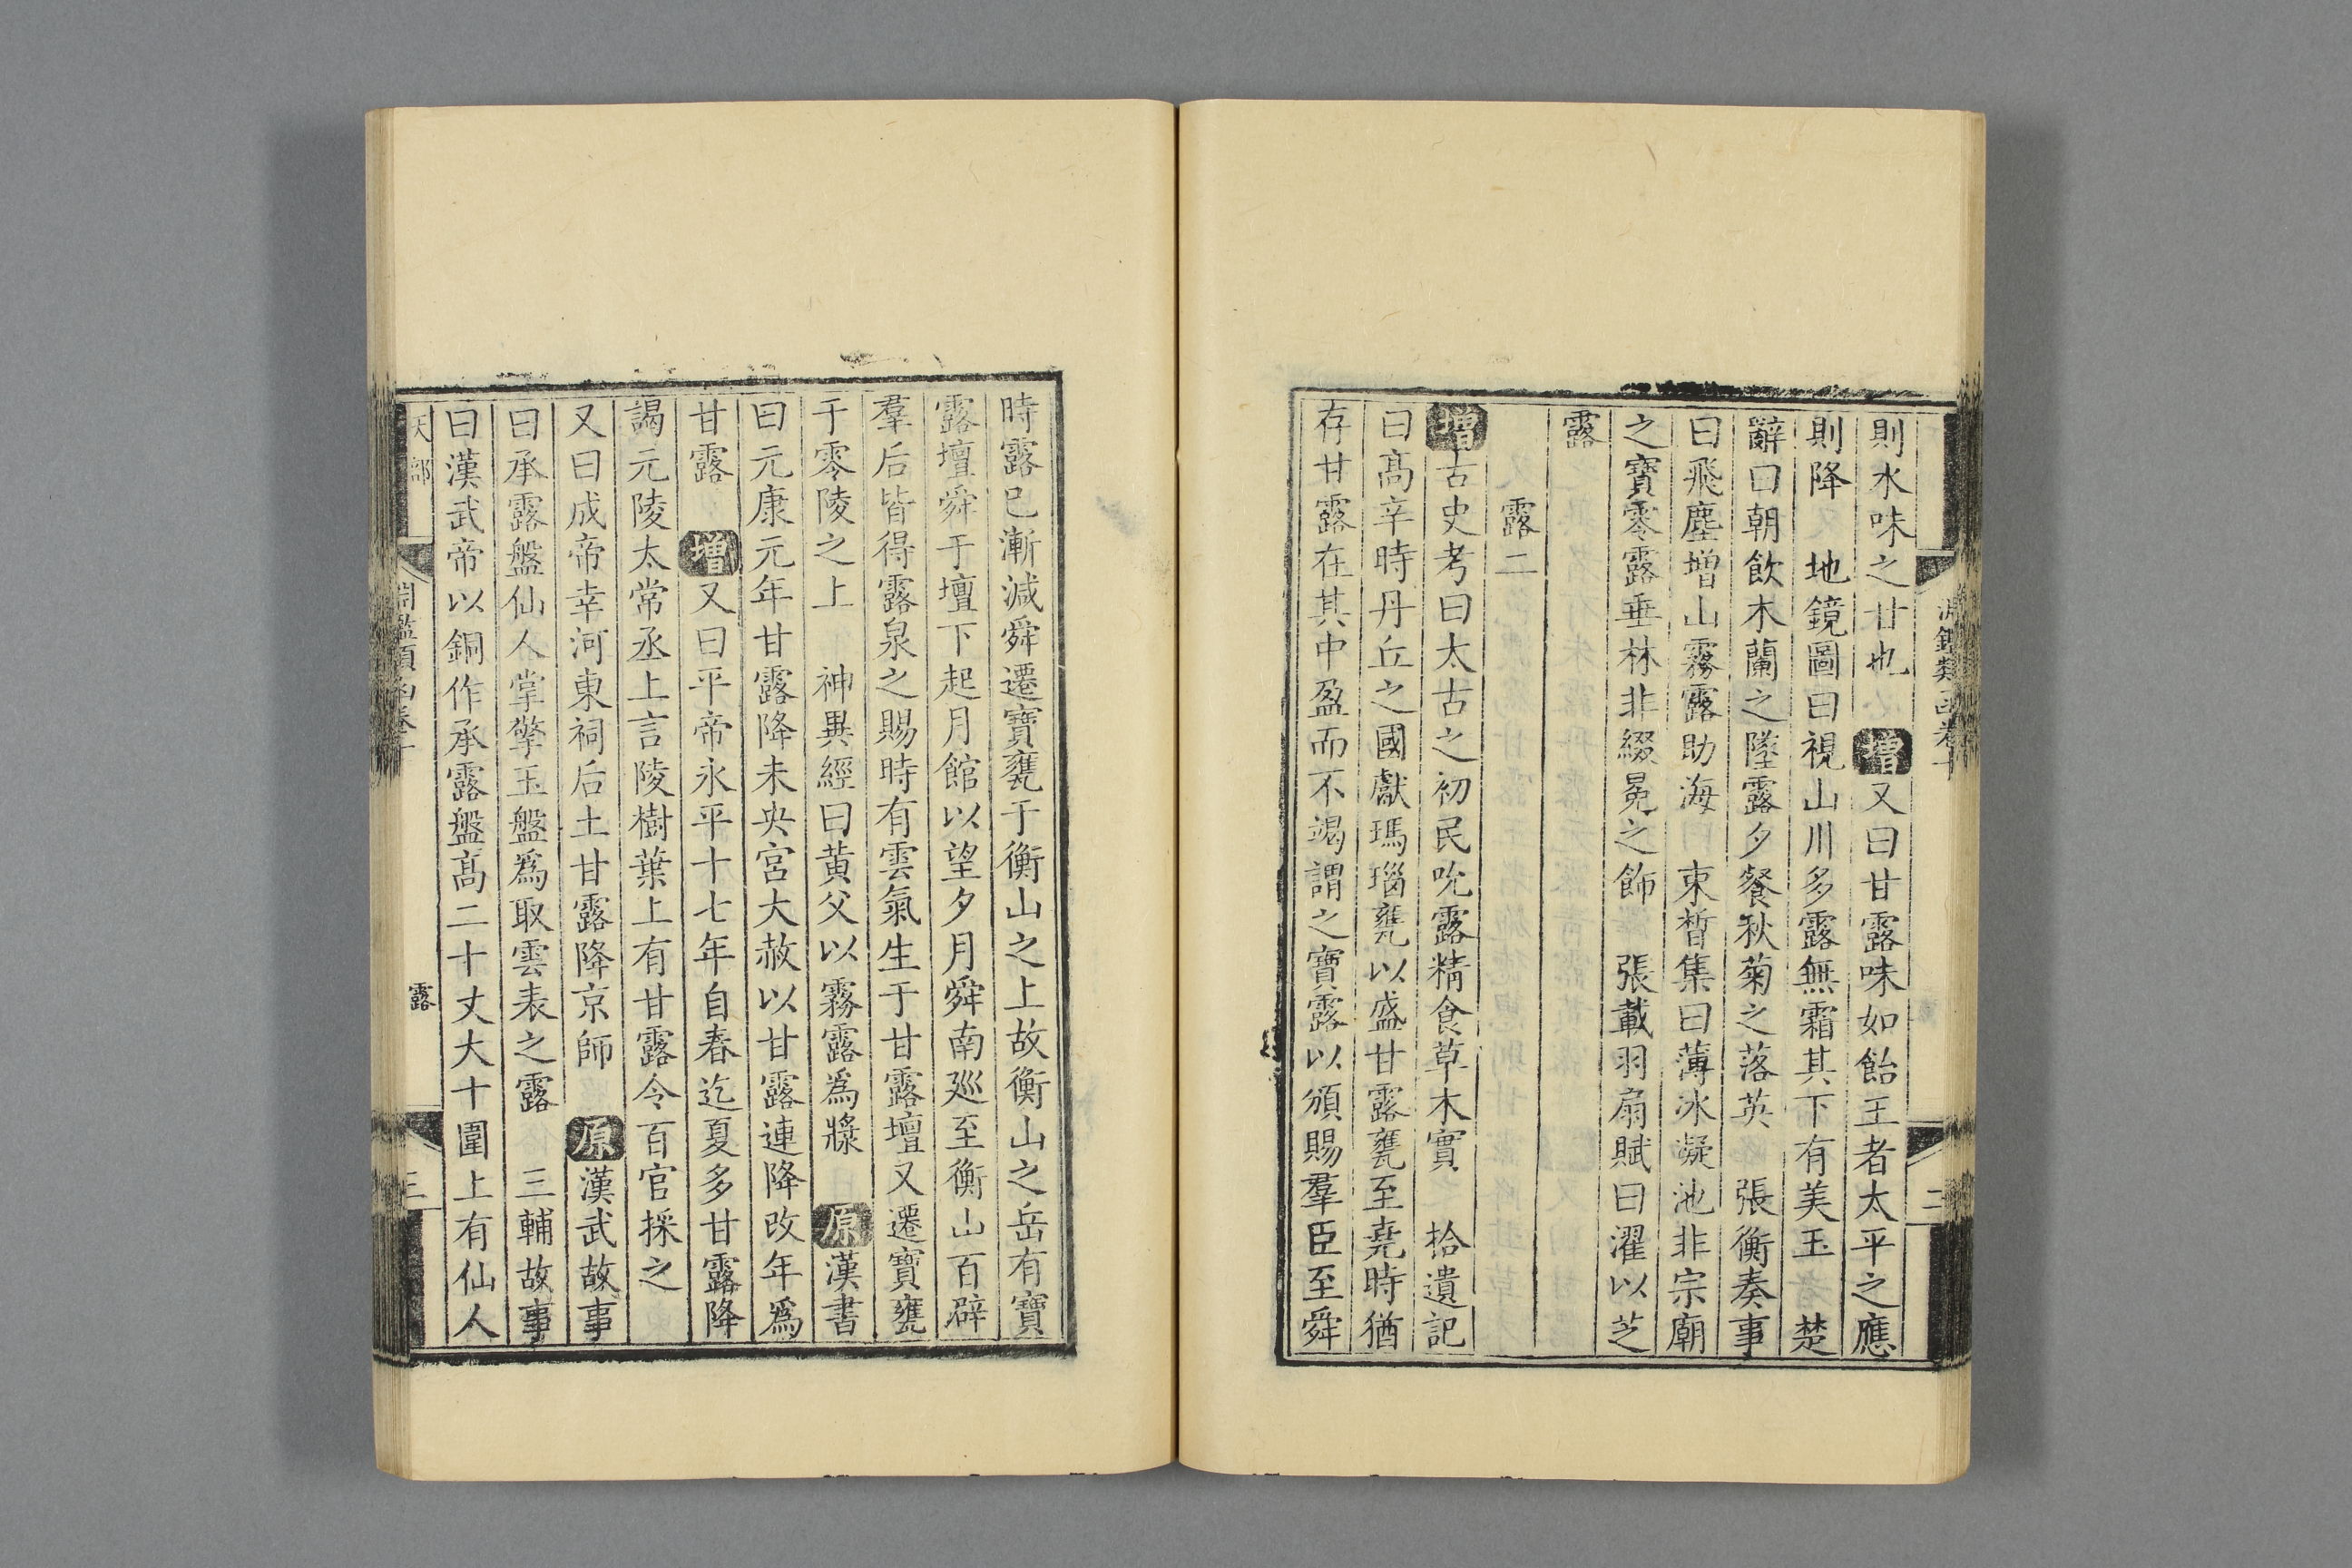 淵鑑類函卷十
二
則水味之甘也　增又曰甘露味如飴王者太平之應
則降　地鏡圖曰視山川多露無霜其下有美玉　楚
辭曰朝飲木蘭之墜露夕餐秋菊之落英　張衡奏事
曰飛塵增山霧露助海　束晳集曰薄冰凝池非宗廟
之寶零露垂林非綴冕之飾　張載羽扇賦曰濯以芝
露
露二
增古史考曰太古之初民吮露精食草木實　拾遺記
曰高辛時丹丘之國獻瑪瑙甕以盛甘露甕至堯時猶
存甘露在其中盈而不竭謂之寶露以頒賜羣臣至舜
時露已漸減舜遷寶甕于衡山之上故衡山之岳有寶
露壇舜于壇下起月館以望夕月舜南巡至衡山百辟
羣后皆得露泉之賜時有雲氣生于甘露壇又遷寶甕
于零陵之上　神異經曰黃父以霧露為漿　原漢書
曰元康元年甘露降未央宮大赦以甘露連降改年爲
甘露　增又曰平帝永平十七年自春迄夏多甘露降
謁元陵太常丞上言陵樹葉上有甘露令百官採之
又曰成帝幸河東祠后土甘露降京師　原漢武故事
曰承露盤仙人掌擎玉盤爲取雲表之露　三輔故事
曰漢武帝以銅作承露盤高二十丈大十圍上有仙人
天部
淵鑑類函卷十
露
三